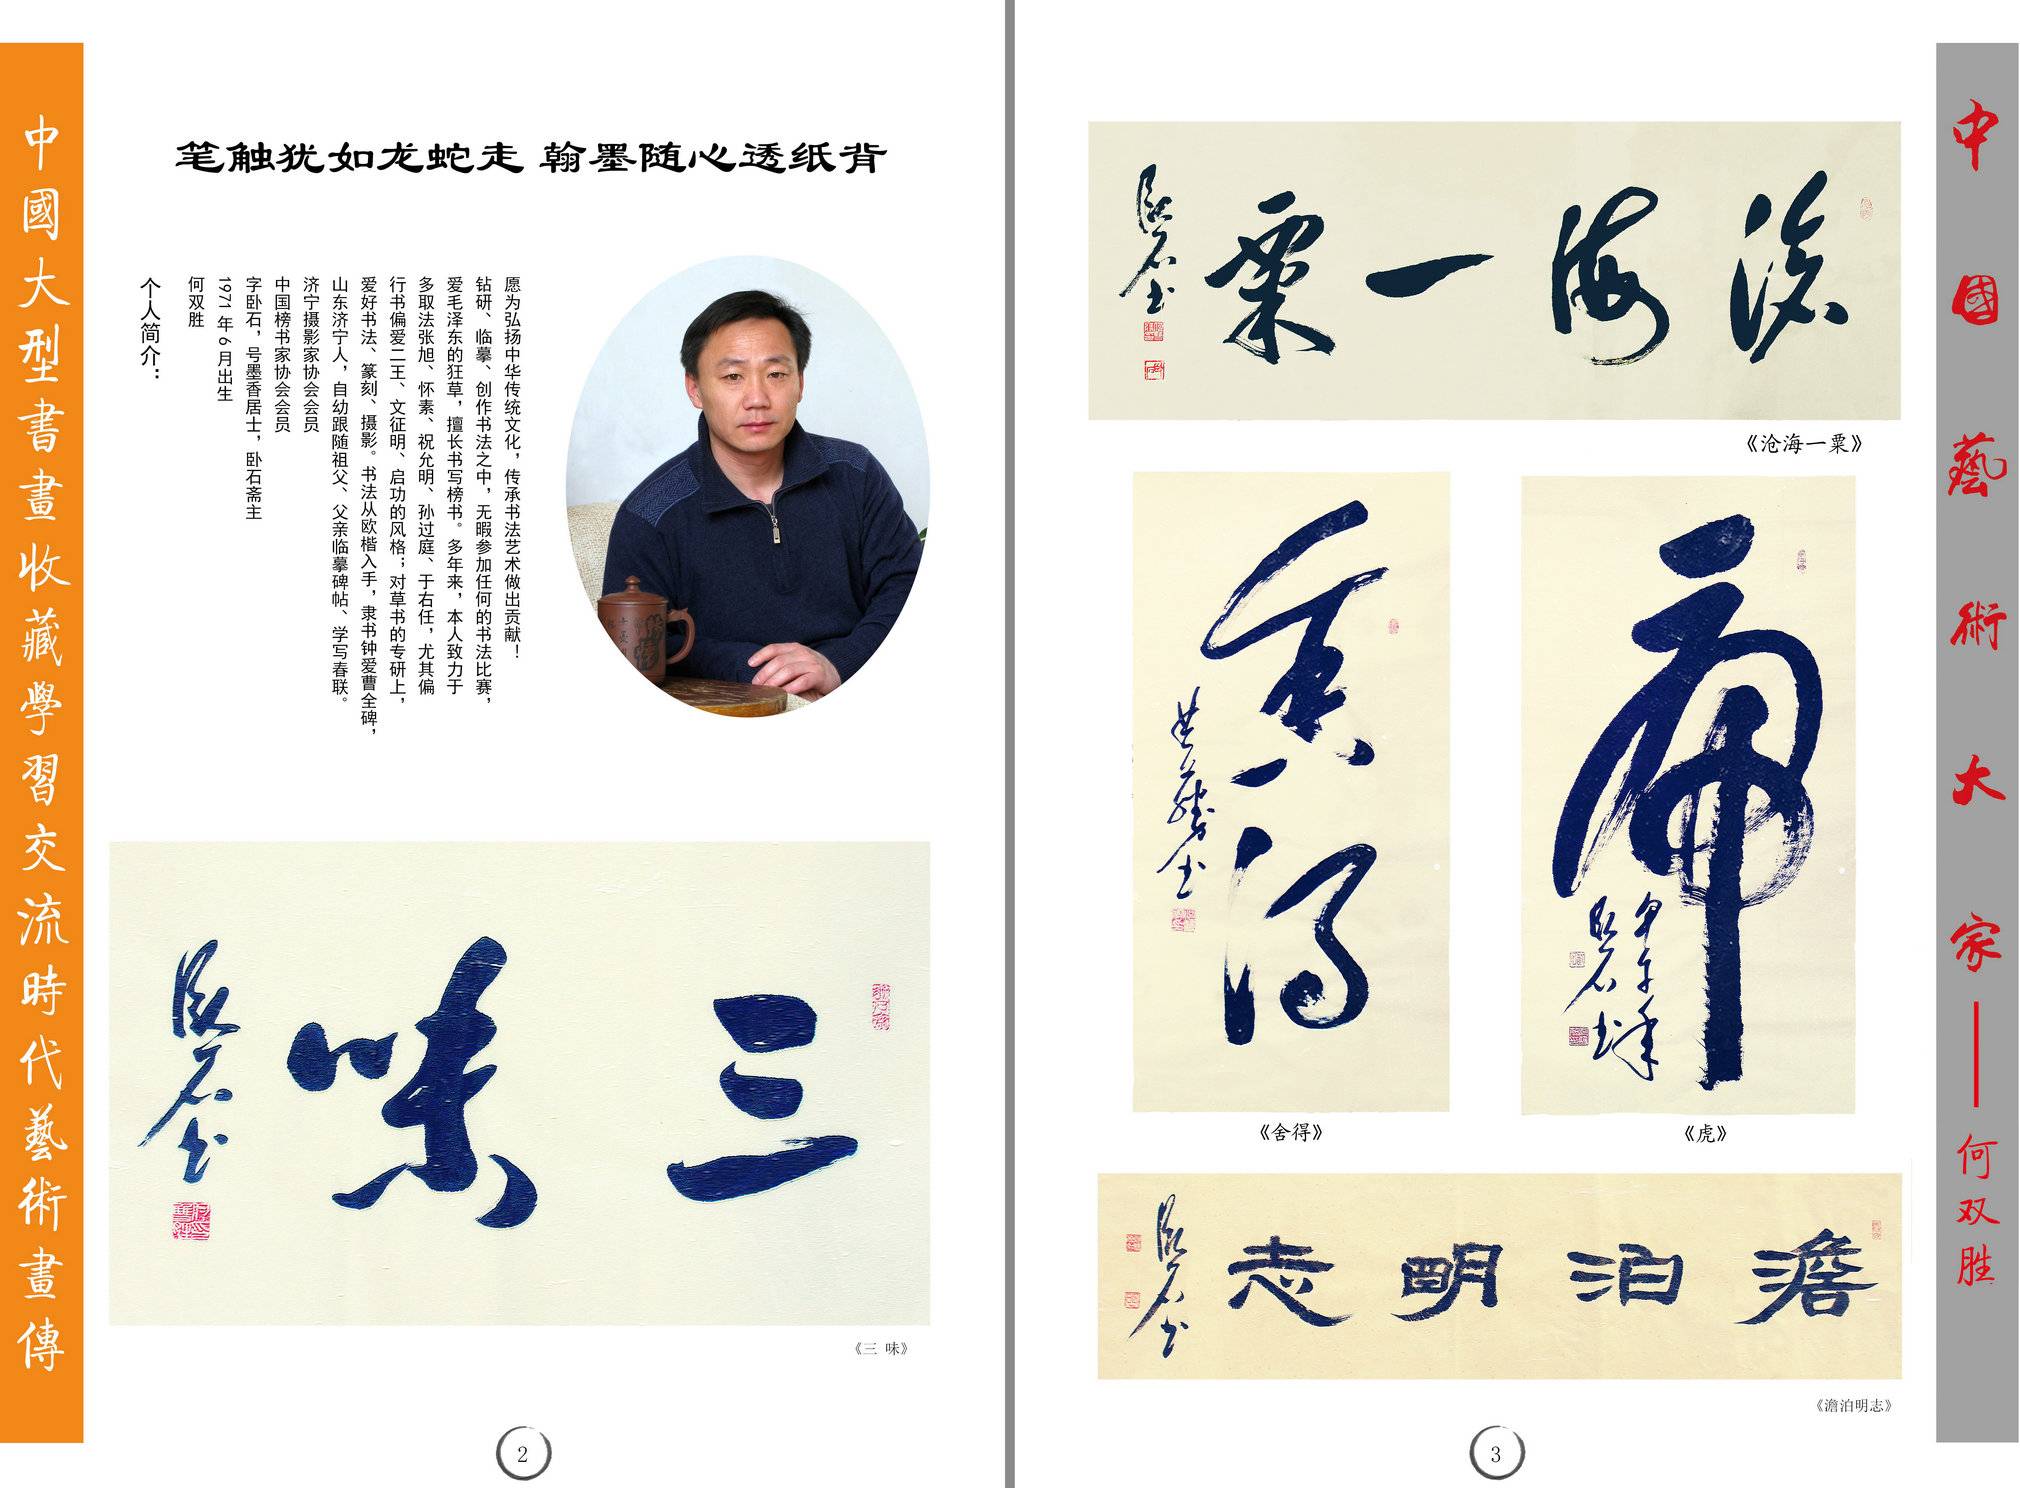 中國大型書畫收藏學習交流時代藝術畫傳
笔触犹如龙蛇走 翰墨随心透纸背
个人简介：
何双胜
1971 年 6 月出生
字卧石，号墨香居士，卧石斋主
中国榜书家协会会员
济宁摄影家协会会员
山东济宁人，自幼跟随祖父、父亲临摹碑帖、学写春联。
爱好书法、篆刻、摄影。书法从欧楷入手，隶书钟爱曹全碑，
行书偏爱二王、文征明、启功的风格；对草书的专研上，
多取法张旭、怀素、祝允明、孙过庭、于右任，尤其偏
爱毛泽东的狂草，擅长书写榜书。多年来，本人致力于
钻研、临摹、创作书法之中，无暇参加任何的书法比赛，
愿为弘扬中华传统文化，传承书法艺术做出贡献！
三味
卧石书
《三 味》
2
沧海一粟
卧石书
《沧海一粟》
舍得
《舍得》
虎
甲午年
卧石书
《虎》
澹泊明志
卧石书
《澹泊明志》
3
中國藝術大家——何双胜